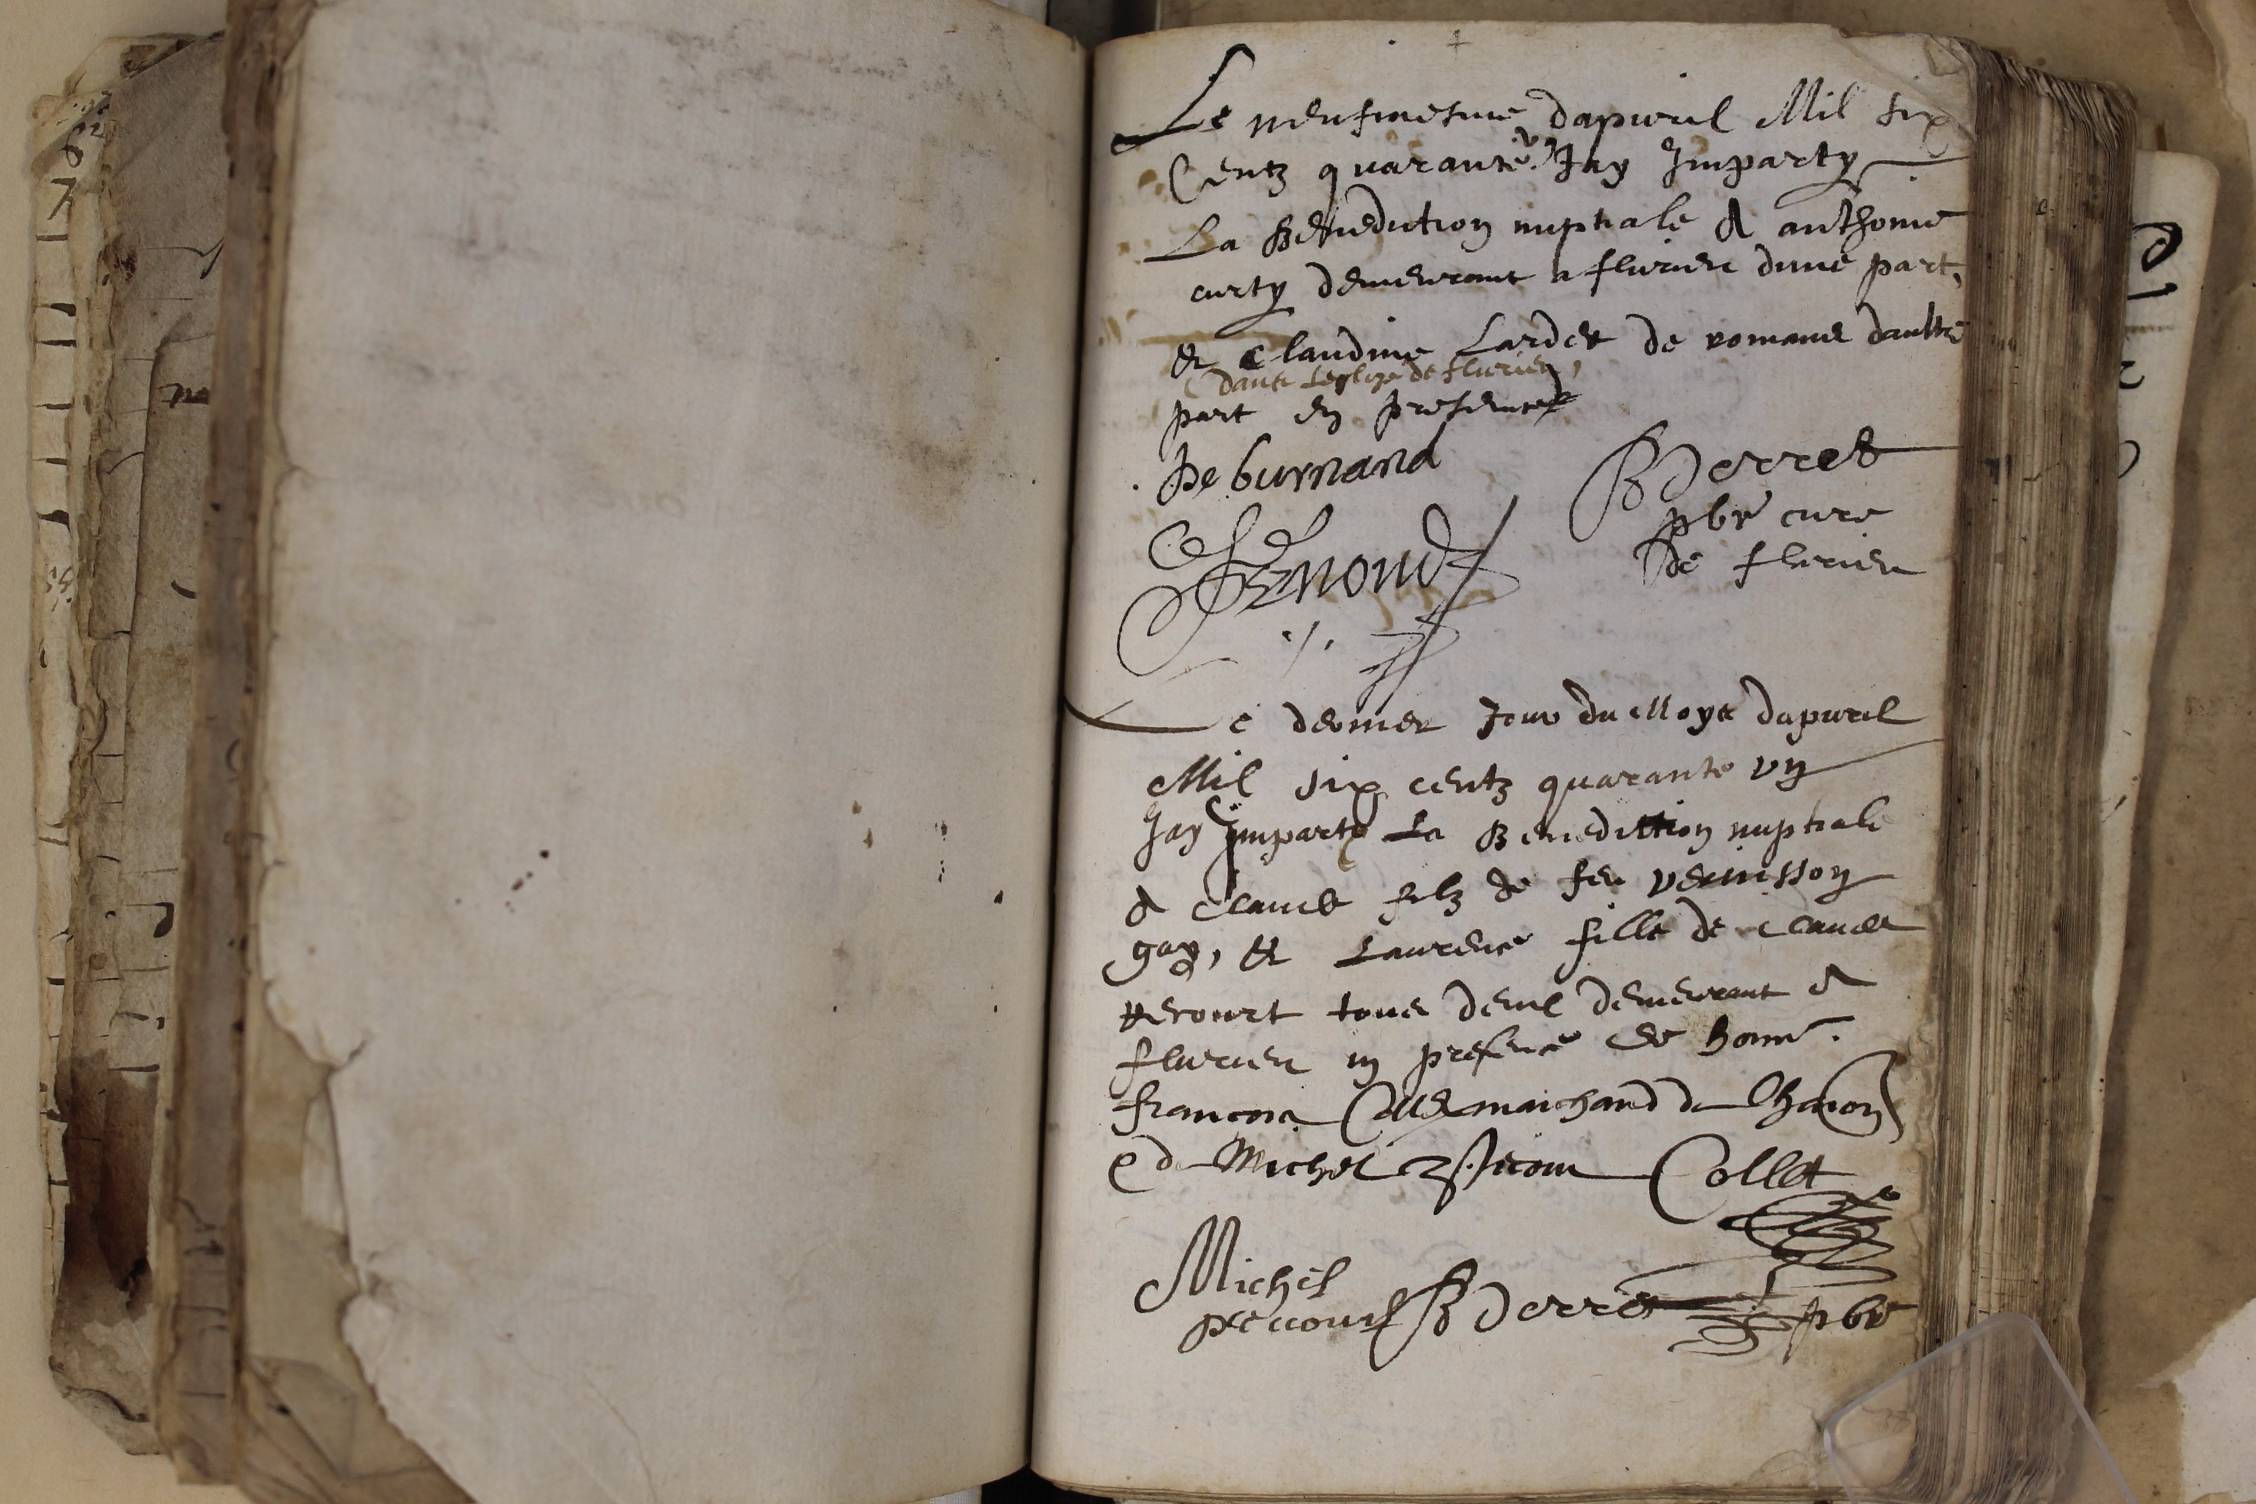 Le neufviesme dapuril Mil six
Centz quarante Jay Imparty
La Benediction nuptiale A anthoine
curty demeurant a flurieu dune part,
et claudine Lardet de romans daultre
dans Leglize de flurieu,
part en presence
De burnand
BDerret
pbr cure
de flurieu
e dernier Jour du Moys dapuril
Mil six centz quarante vn
Jay Imparty La Benediction nuptiale
A claude filz de feu
gay, et Laurence fille de claude
recourt tous deux demeurant A
flurieu in presence de honn.
francois Collet marchand de
e de Michel Collet
Michel
recourt BDerret pbr